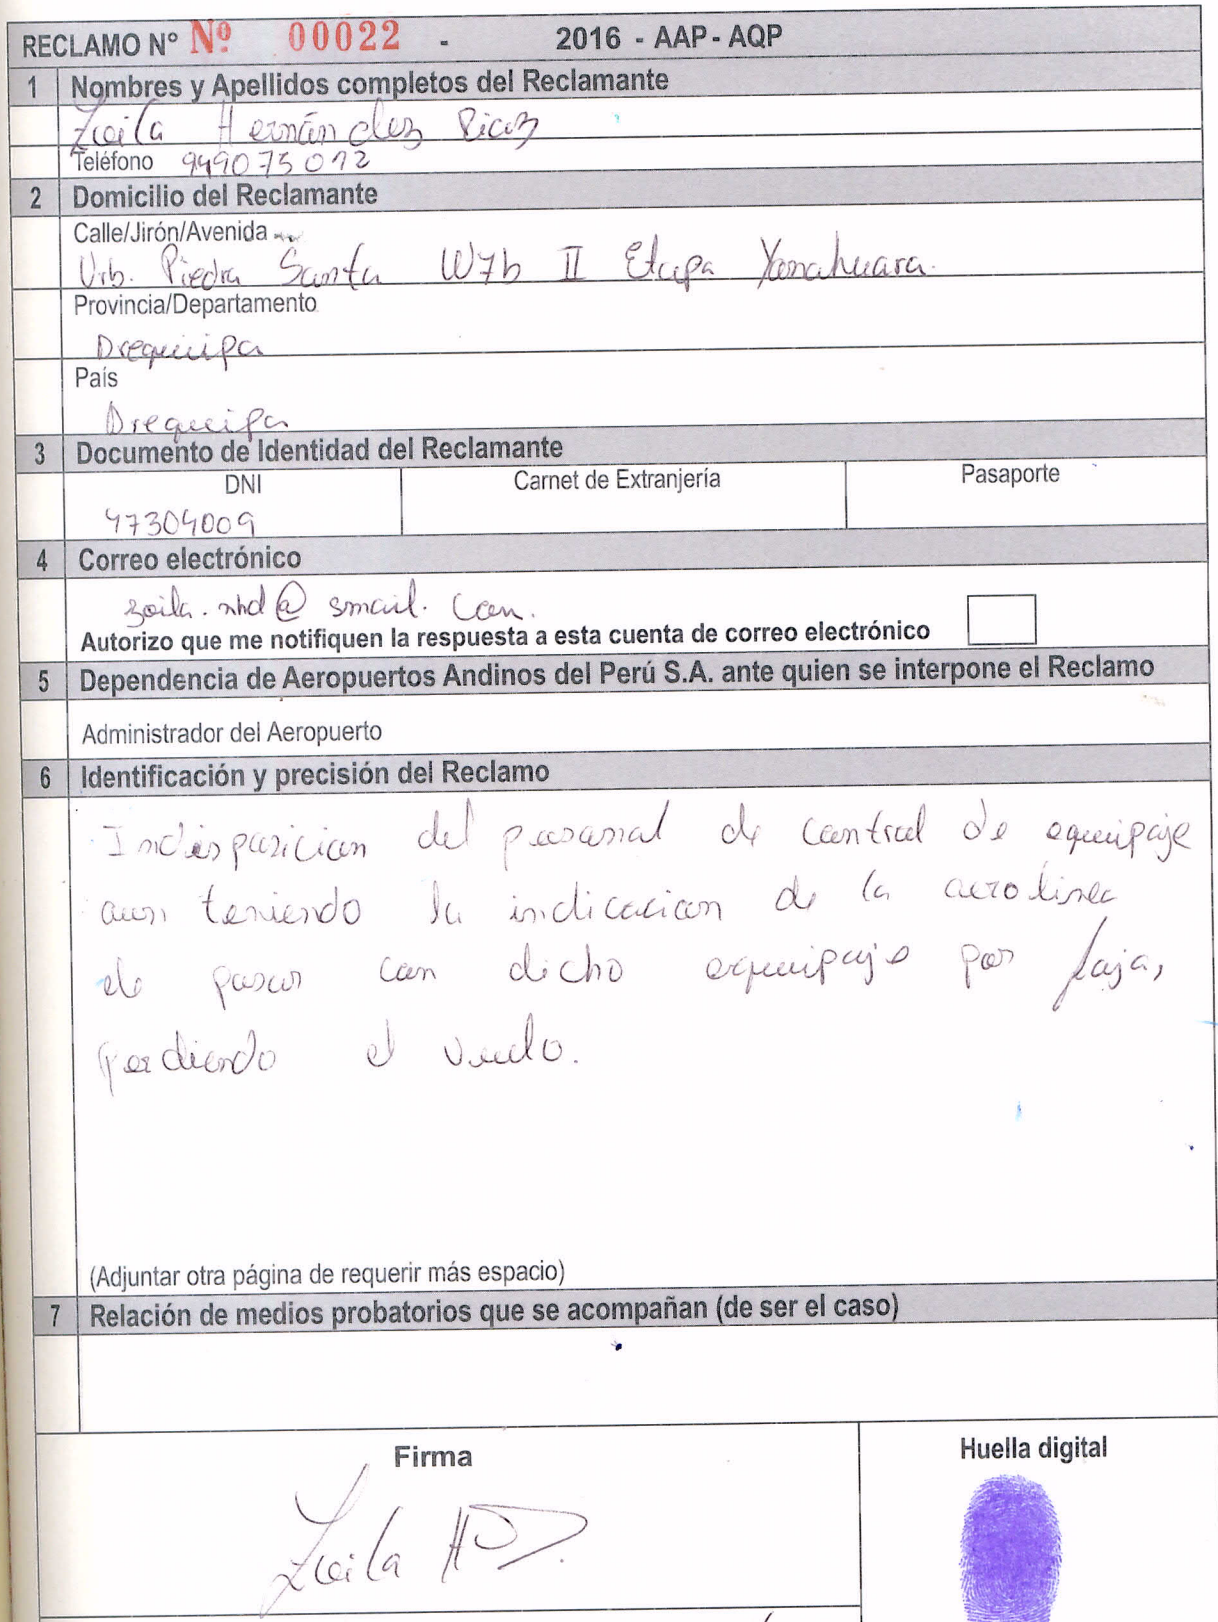 RECLAMO N° Nº 00022 - 2016 - AAP - AQP
1 Nombres y Apellidos completos del Reclamante
Zoila Hernández Díaz
Teléfono 949075012
2 Domicilio del Reclamante
Calle/Jirón/Avenida
Urb. Piedra Santa W7b II Etapa Yanahuara.
Provincia/Departamento
Arequipa
País
Arequipa
3 Documento de Identidad del Reclamante
DNI Carnet de Extranjería Pasaporte
47304009
4 Correo electrónico
zoila.nhd@
Autorizo que me notifiquen la respuesta a esta cuenta de correo electrónico
5 Dependencia de Aeropuertos Andinos del Perú S.A. ante quien se interpone el Reclamo
Administrador del Aeropuerto
6 Identificación y precisión del Reclamo
Indisposicion del personal de control de equipaje
aun teniendo la indicacion de la aerolinea
de pasar con dicho equipaje por faja,
perdiendo el vuelo.
(Adjuntar otra página de requerir más espacio)
7 Relación de medios probatorios que se acompañan (de ser el caso)
Firma Huella digital
Zoila HD.